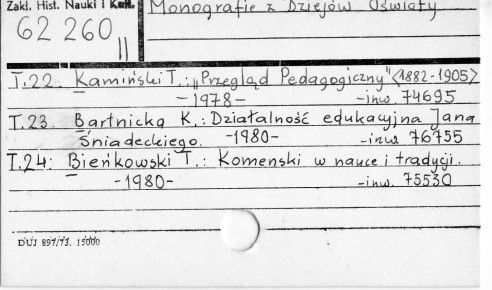 Zakł. Hist. Nauki i Kult. Monografie z Dziejów Oświaty
62 260
II
T.22. Kamiński T.: „Przegląd Pedagogiczny" <1882-1905>
-1978- -inw. 74695
T.23. Bartnicka K.: Działalność edukacyjna Jana
Śniadeckiego. -1980- -inw. 76755
T.24: Bieńkowski T.: Komenski w nauce i tradycji.
-1980- -inw. 75530
DUJ 897/73. 15000